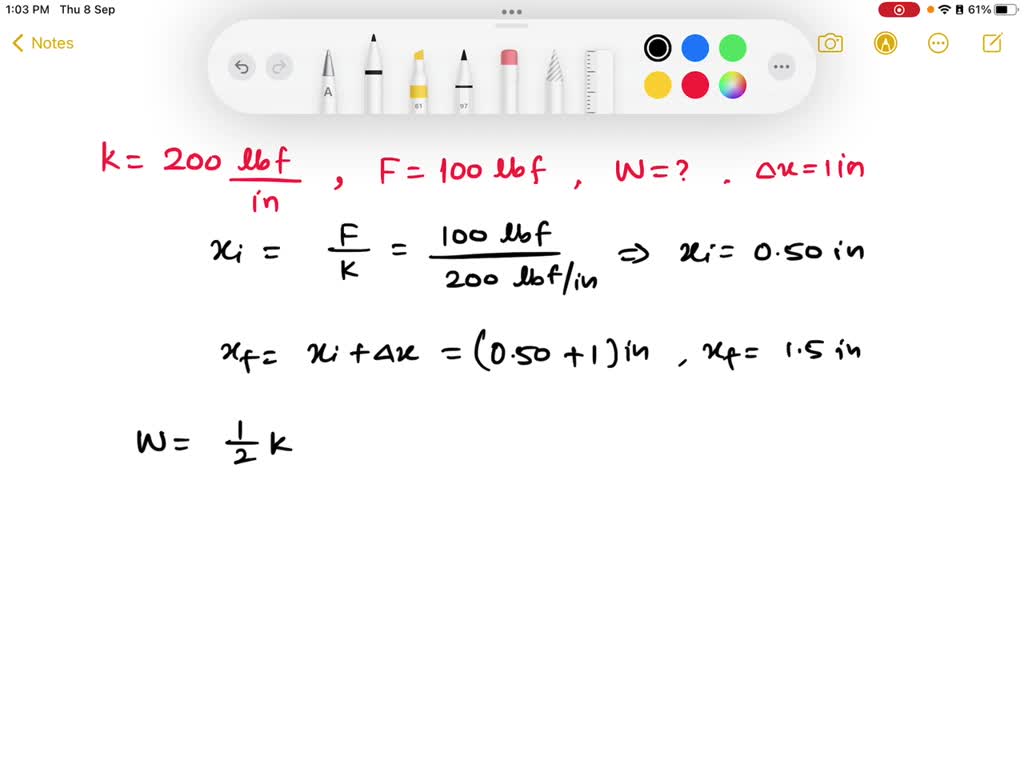 1:03 PM Thu 8 Sep
61%
Notes
A
61
97
k = 200 lbf/in , F = 100 lbf , W = ? . Δx = 1 in
xi = F/K = 100 lbf / 200 lbf/in ⇒ xi = 0.50 in
xf = xi + Δx = (0.50 + 1) in , xf = 1.5 in
W = 1/2 K